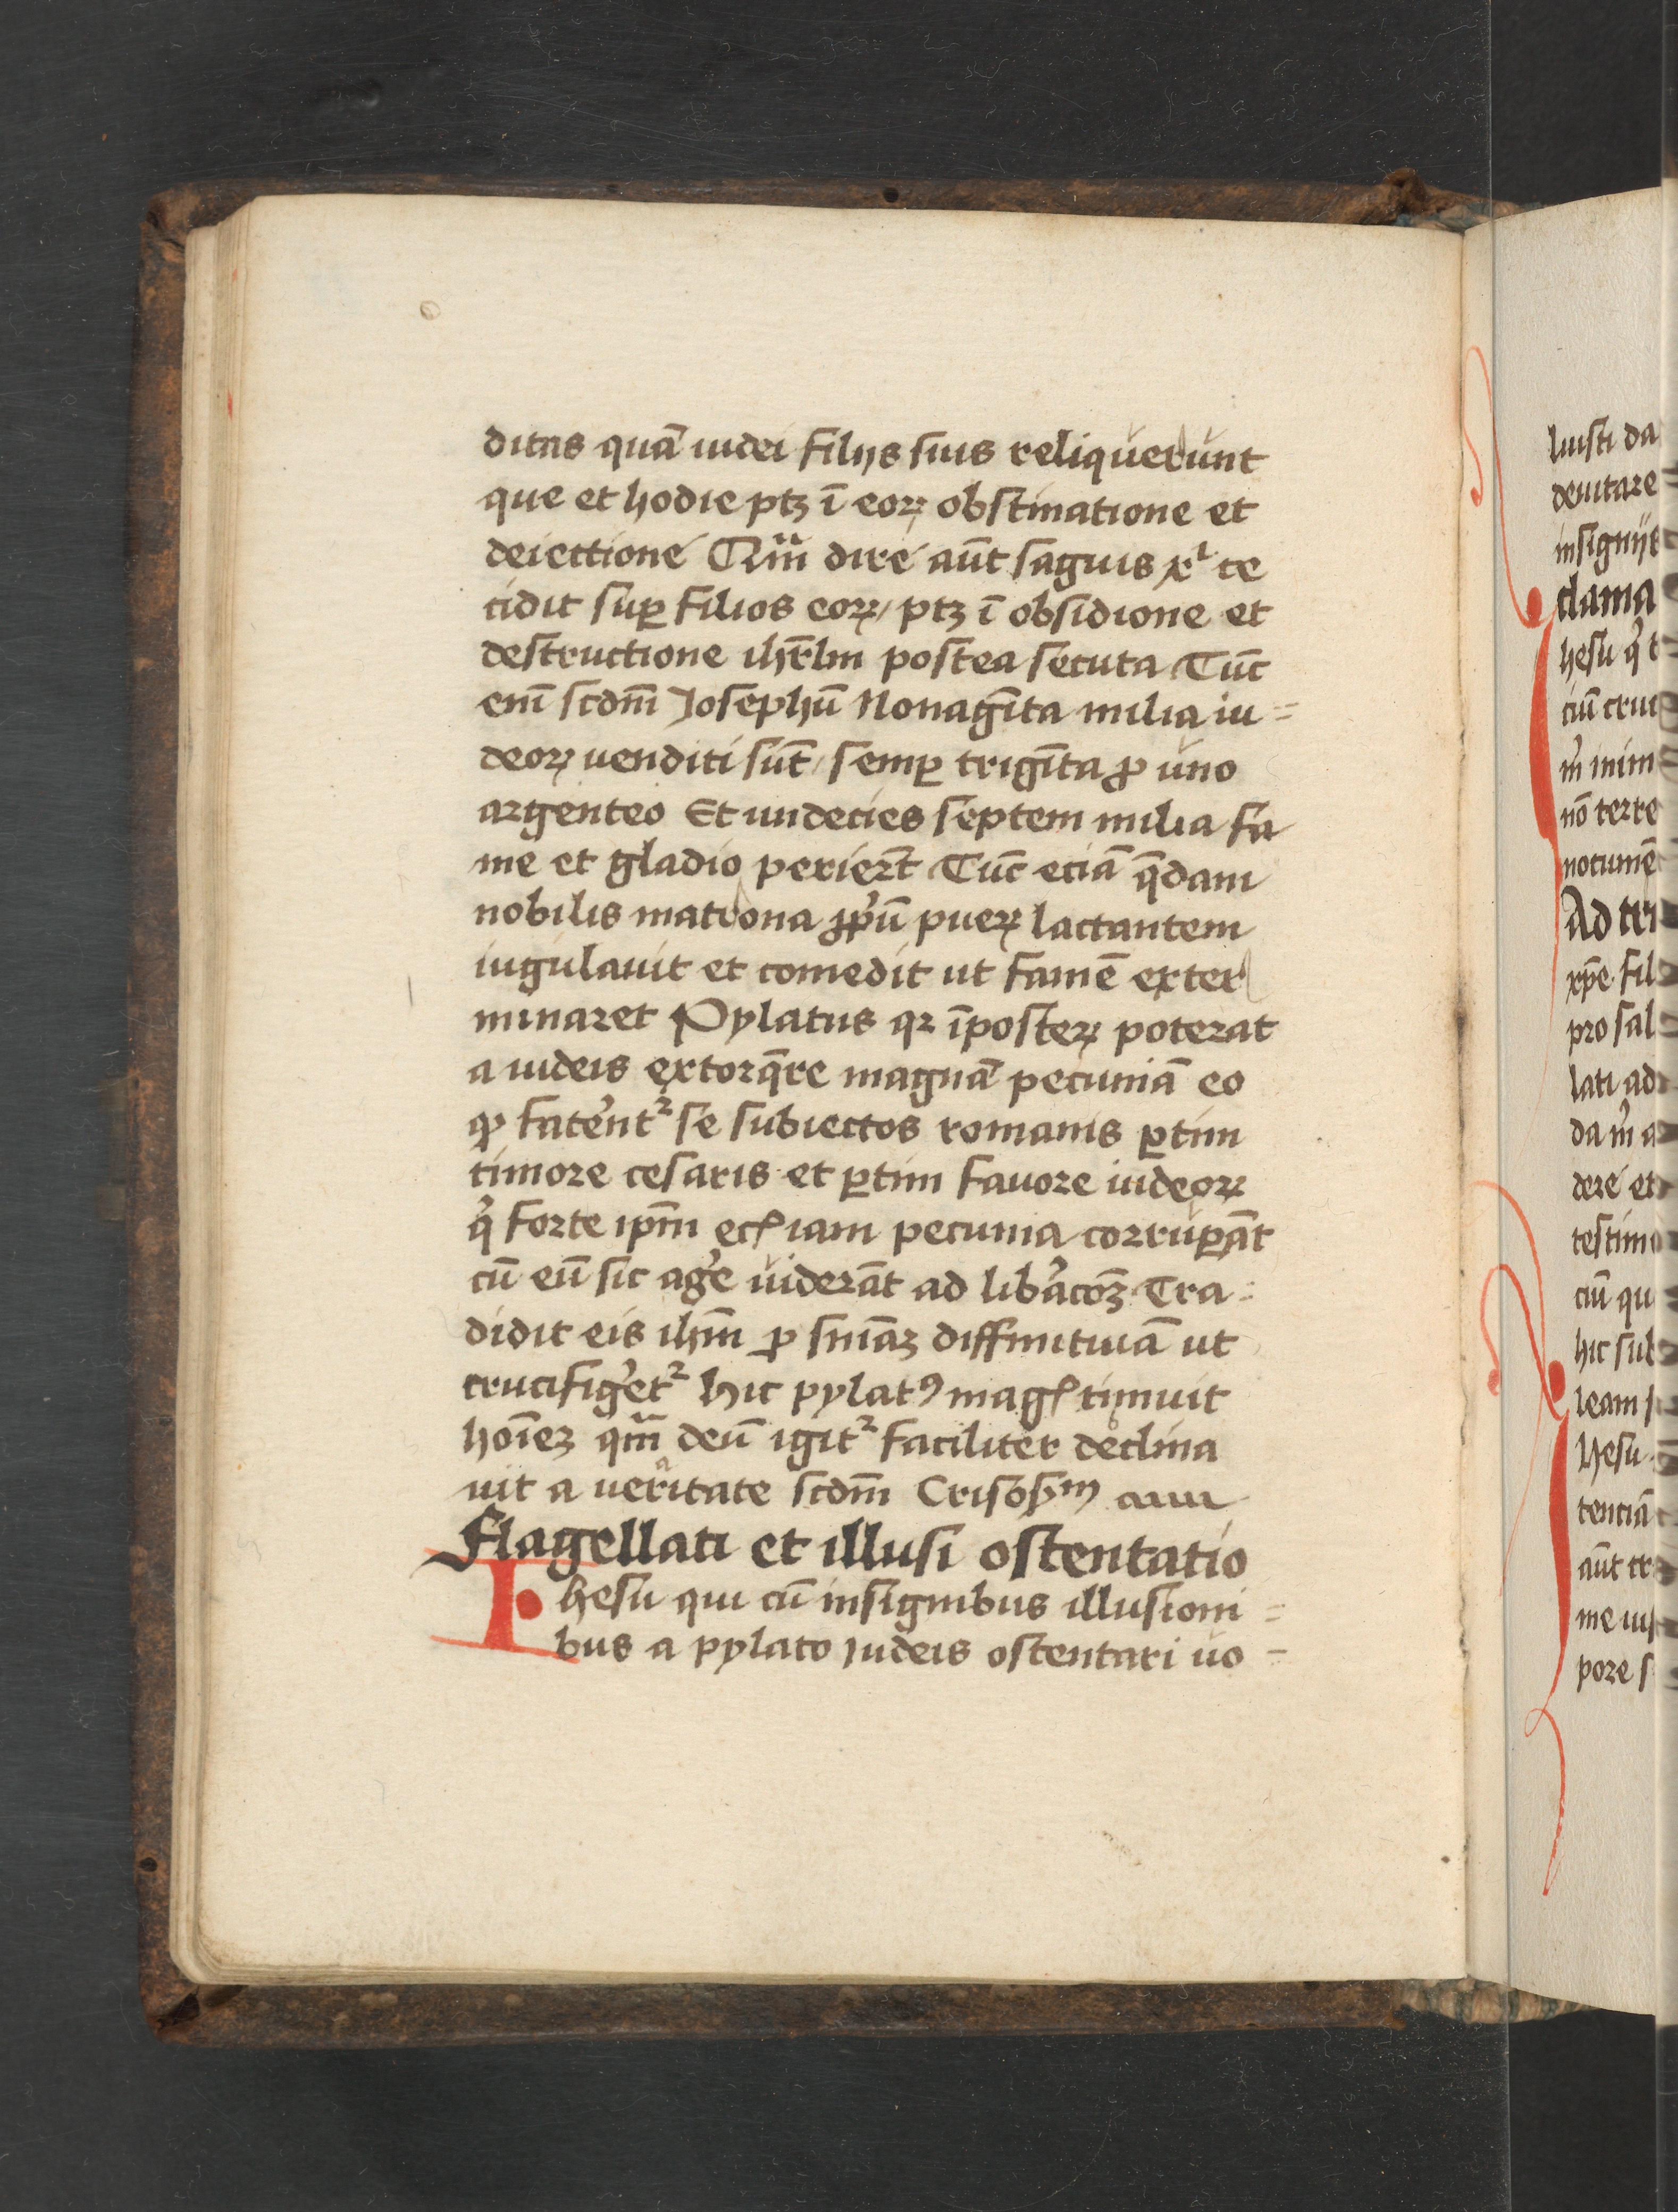 ditas quā iudei filijs suis reliquerunt
que et hodie ptꝫ ī eoꝝ obstinatione et
deiectione Qm̄ dire aūt saguis xͥ ce
cidit suꝑ filios eoꝝ / ptꝫ ī obsidione et
destructione ihrl̄m postea secuta Tūc
eni̅ scdm̄ Josephū Nonagīta milia iu =
deoꝝ venditi sūt / semꝑ trigīta ꝓ uno
argenteo Et undecies septem milia fa
me et gladio periert̄ Tūc eciā q̄dam
nobilis matrona ꝓpͥū pueꝝ lactantem
iugulauit et comedit ut famē exter
minaret Pylatus qꝛ īposteꝝ poterat
a iudeis extorq̄re magnā pecuniā eo
ꝙ fatent᷑ se subiectos romanis ꝑtim
timore cesaris et ꝑtim fauore iudeoꝝ
qͥ forte ipm̄ eciam pecunia corruꝑāt
cū eū sic age̓ viderāt ad libac̓oꝫ Tra =
didit eis ihm̄ ꝑ sniaꝫ diffinitiuā ut
crucifige̓t᷑ Hic pylatꝰ magꝭ timuit
hoi̅eꝫ qm̄ deū igit᷑ faciliter declina
uit a veritate scdm̄ Crisosͫ
Flagellati et illusi ostentatio
Ihesu qui cū insignibus illusioni =
bus a pylato Judeis ostentari uo =
luisti da
deuitare
insigniit
clama
hesu qͥ t
ciū cruc
nō terre
Ad tri
xp̄e fil
pro sal
lati ad
dere et
testimo
ciū qu
hic sub
leam
hesu
tenciā
aūt tr
pore s